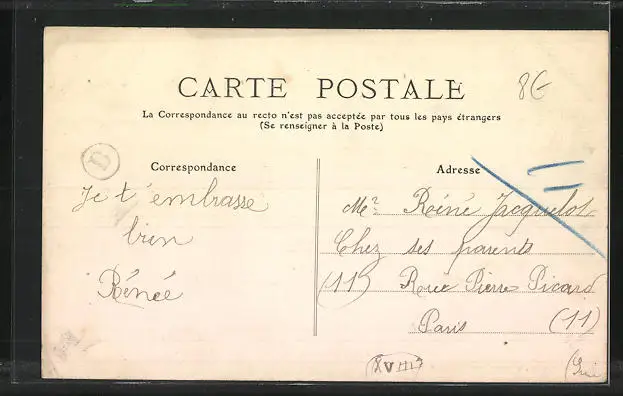 CARTE POSTALE
8€
La Correspondance au recto n'est pas acceptée par tous les pays étrangers
(Se renseigner à la Poste)
B
Correspondance
Adresse
Je t'embrasse
bien
Rénée
Mr Réné Jacquelot
Chez ses parents
(11) Rue Pierre Picard
Paris (11)
(XVIII)